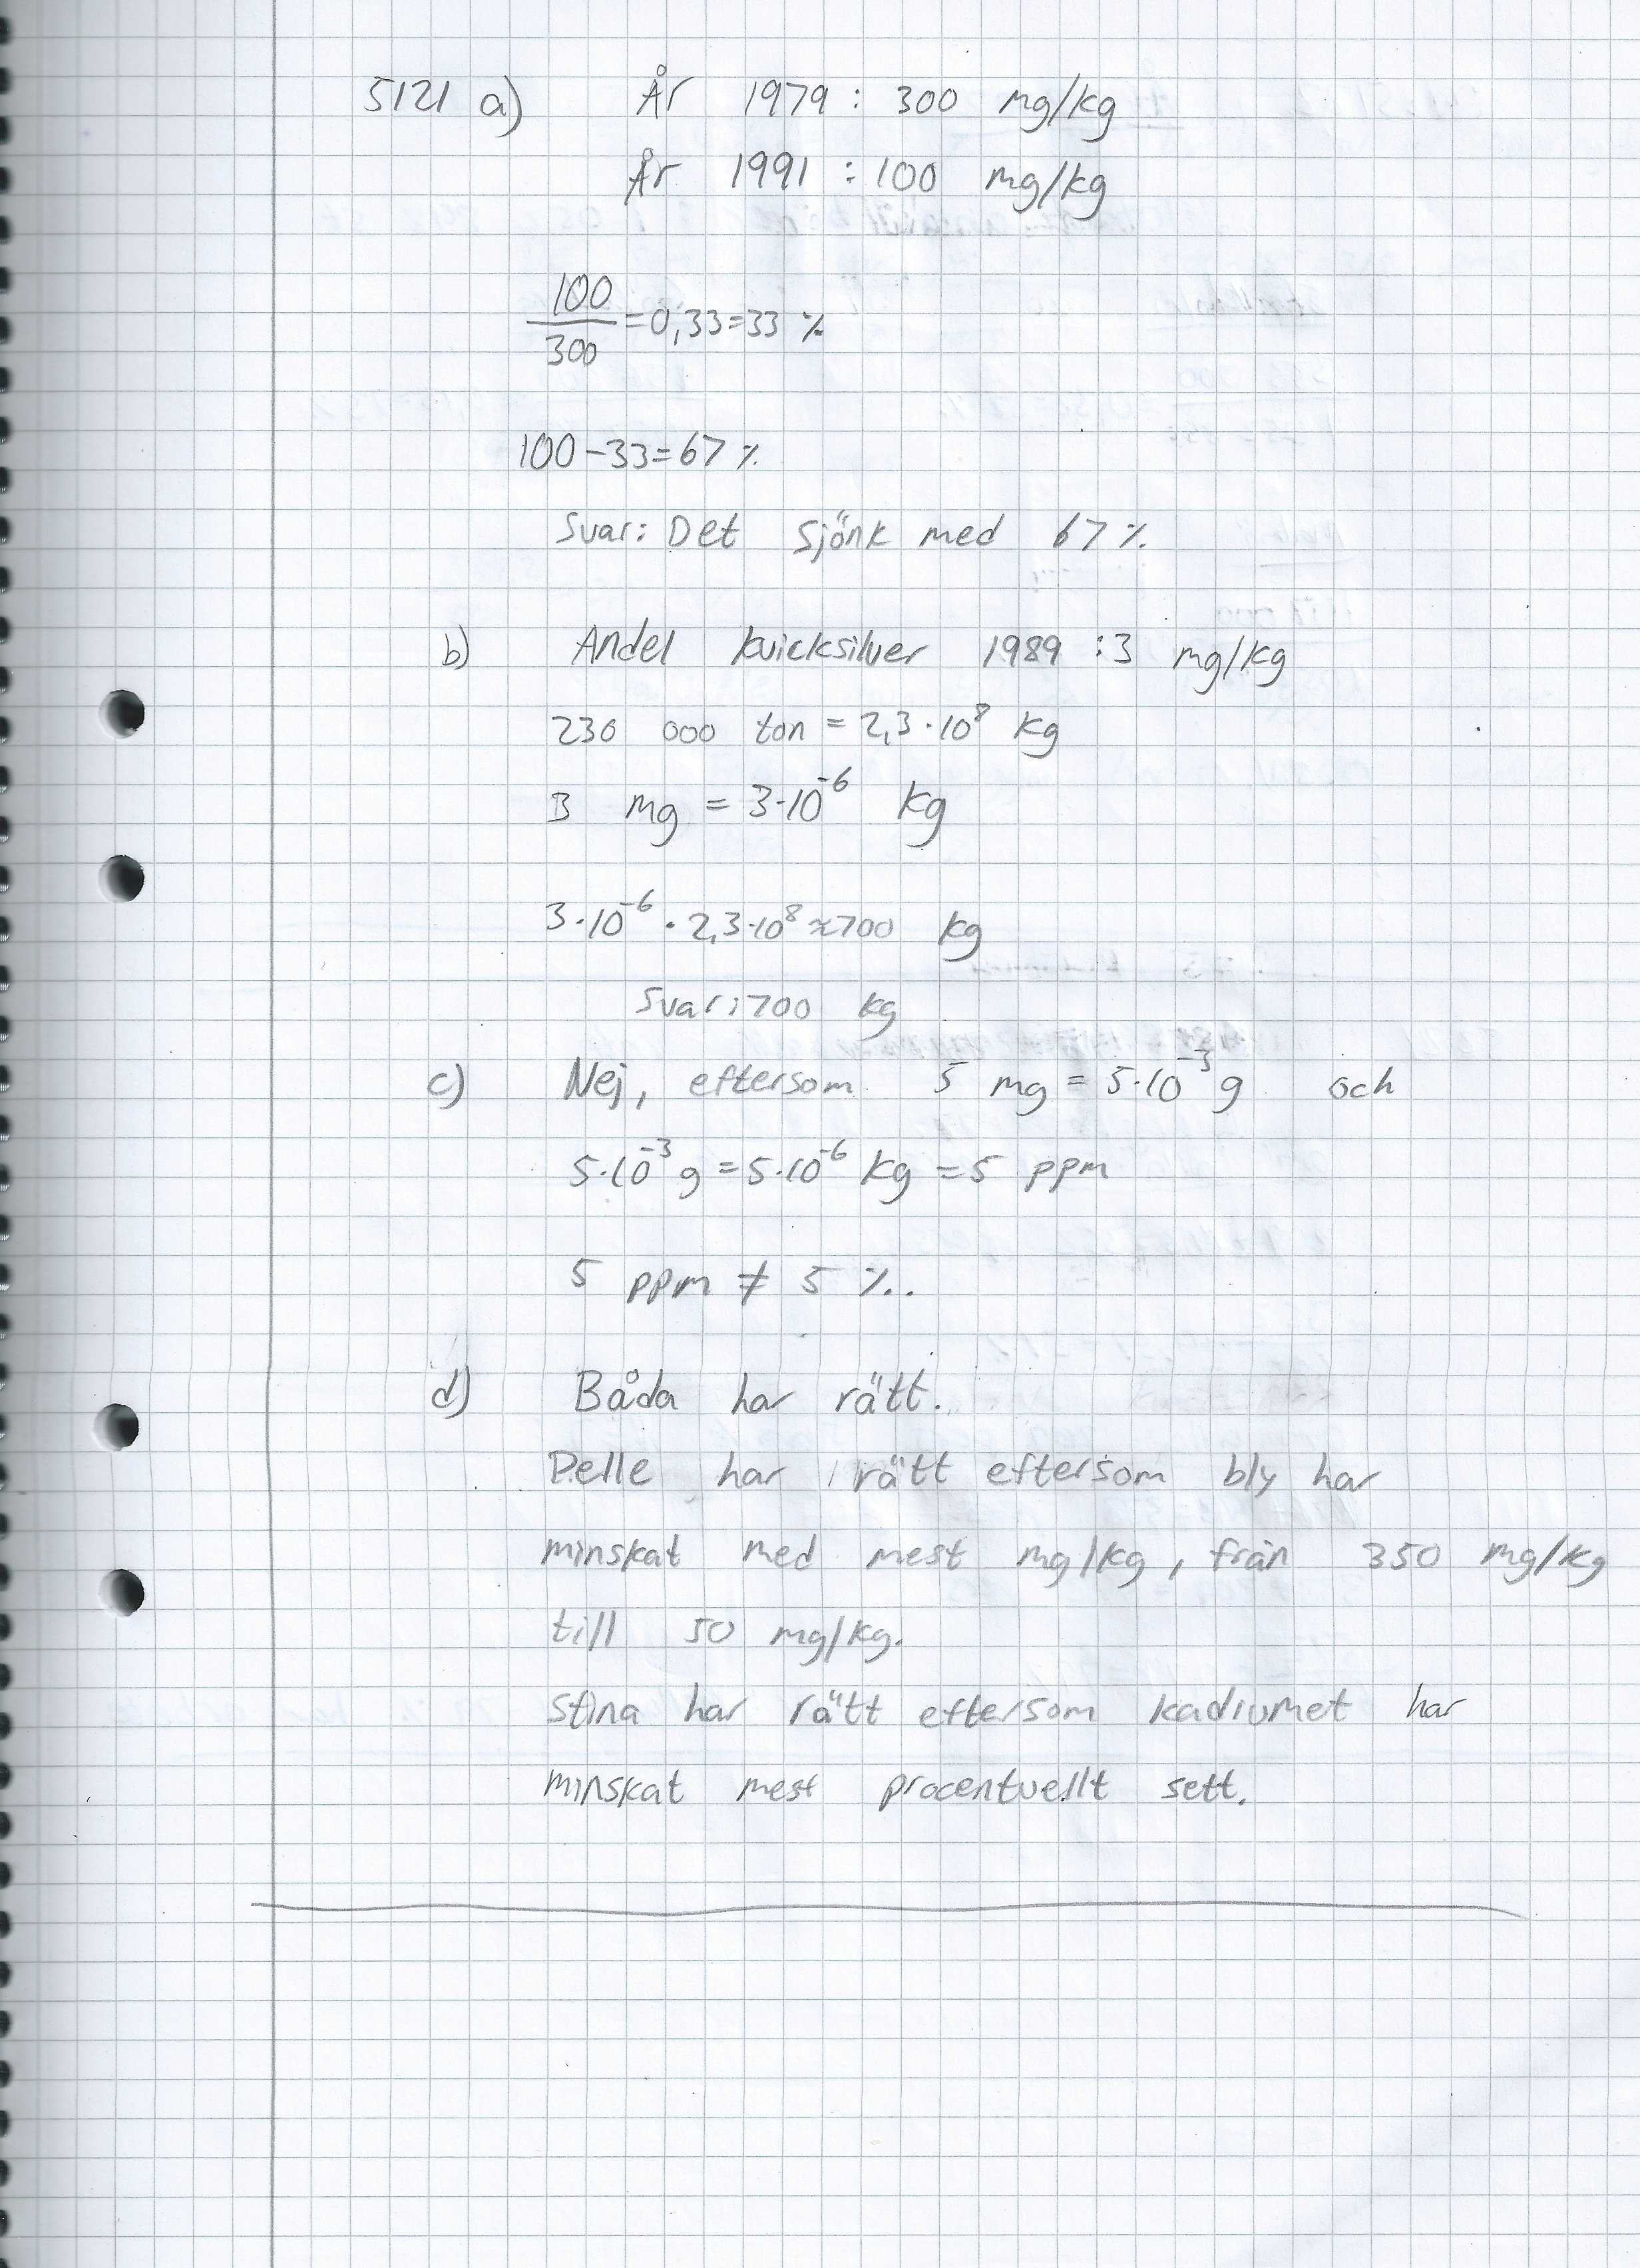 5121 a) År 1979 : 300 mg/kg
År 1991 : 100 mg/kg
100/300 = 0,33 = 33 %
100 - 33 = 67 %
Svar: Det sjönk med 67 %
b) Andel kvicksilver 1989 : 3 mg/kg
230 000 ton = 2,3 · 10⁸ kg
3 mg = 3 · 10⁻⁶ kg
3 · 10⁻⁶ · 2,3 · 10⁸ ≈ 700 kg
Svar: 700 kg
c) Nej, eftersom 5 mg = 5 · 10⁻³ g och
5 · 10⁻³ g = 5 · 10⁻⁶ kg = 5 ppm
5 ppm ≠ 5 %.
d) Båda har rätt.
Pelle har rätt eftersom bly har
minskat med mest mg/kg, från 350 mg/kg
till 50 mg/kg.
Stina har rätt eftersom kadiumet har
minskat mest procentuellt sett.